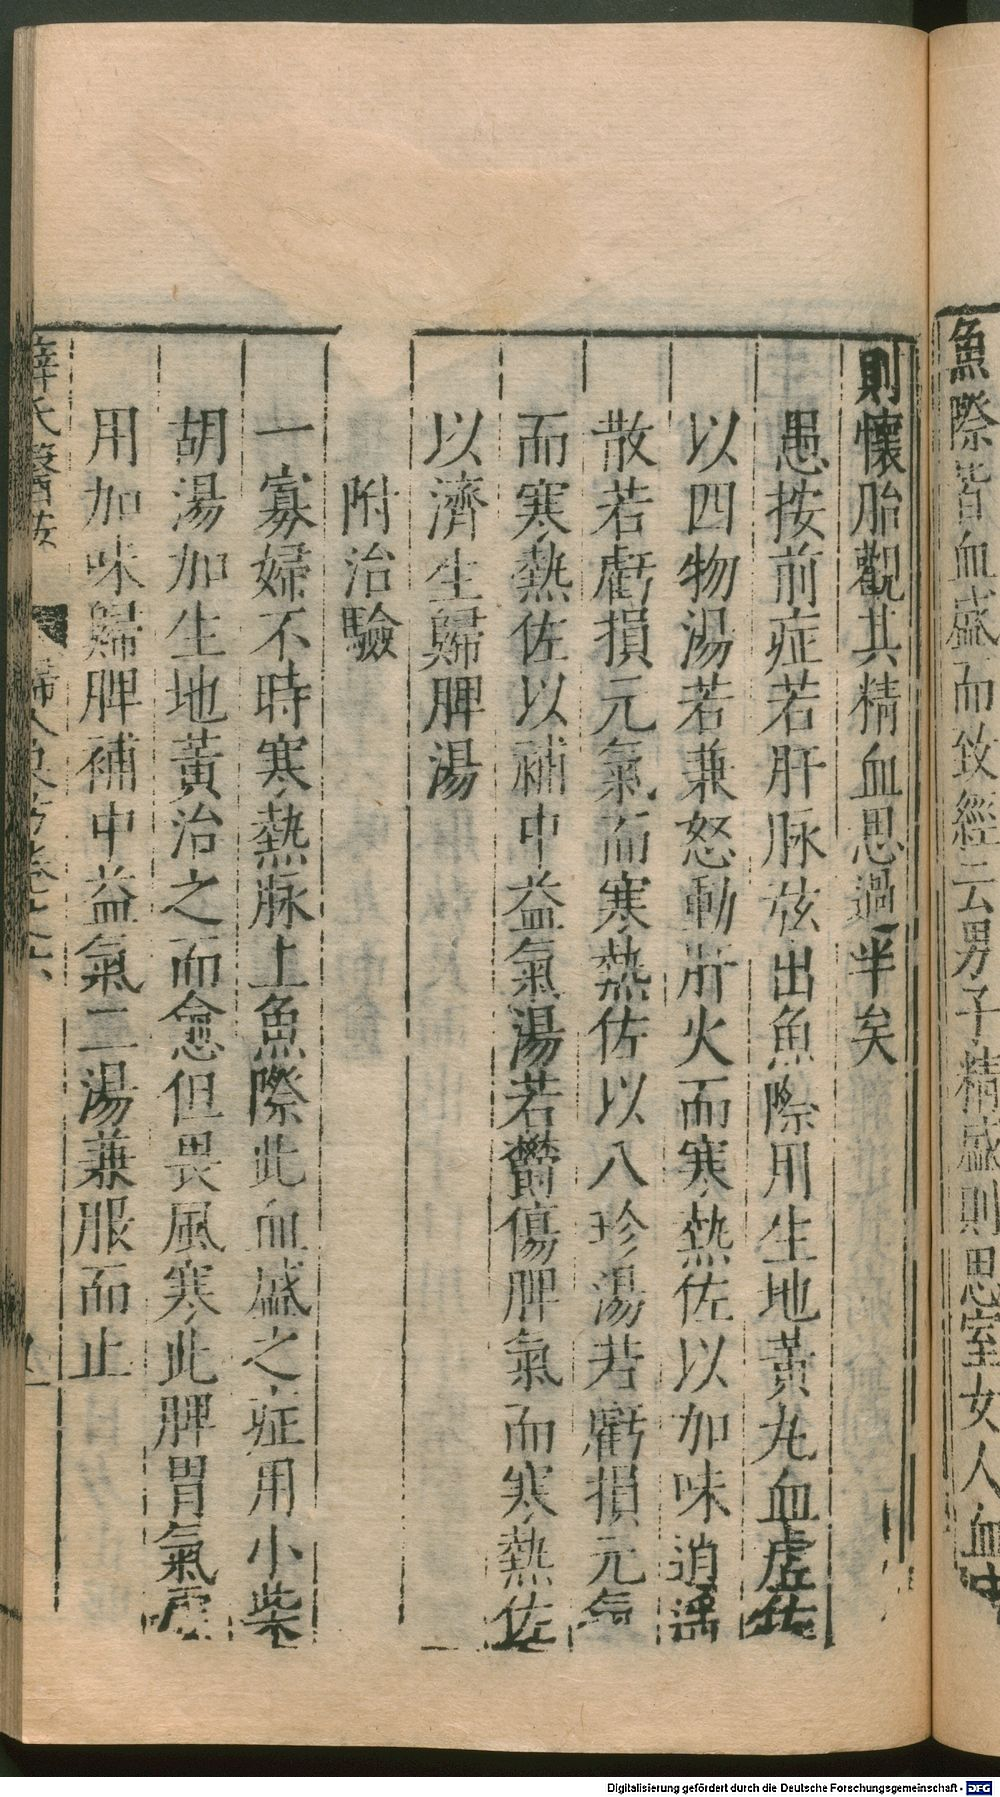 魚際皆血盛而致經云男子精盛則思室女人血
則懷胎觀其精血思過半矣
愚按前症若肝脉弦出魚際用生地黃丸血虛佐
以四物湯若兼怒動肝火而寒熱佐以加味逍遥
散若虧損元氣而寒熱佐以八珍湯若虧損元氣
而寒熱佐以補中益氣湯若鬱傷脾氣而寒熱佐
以濟生歸脾湯
附治驗
一寡婦不時寒熱脉上魚際此血盛之症用小柴
胡湯加生地黃治之而愈但畏風寒此脾胃氣虛
用加味歸脾補中益氣二湯兼服而止
薛氏醫按
婦人良方卷之六
Digitalisierung gefördert durch die Deutsche Forschungsgemeinschaft - DFG